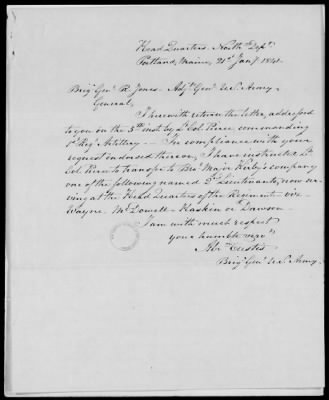 Head Quarters North'n Dep't
Portland, Maine, 21st Jan'y 1841.
Brig' Gen' R. Jones Adj't Gen' U.S. Army
General,
I herewith return the letter, addressed
to you on the 5th inst. by L' Col. Pierce commanding
1st Reg' Artillery — In compliance with your
request endorsed thereon, I have instructed Lt
Col. Pierce to transfer to Bv' Major Kirby's company
one of the following named 2d Lieutenants, now ser-
ving at the Head Quarters of the Regiment — viz.
Wayne, McDowell, Haskin or Dawson
I am with much respect
your humble serv't
Abr Eustis
Brig' Gen' U.S. Army.